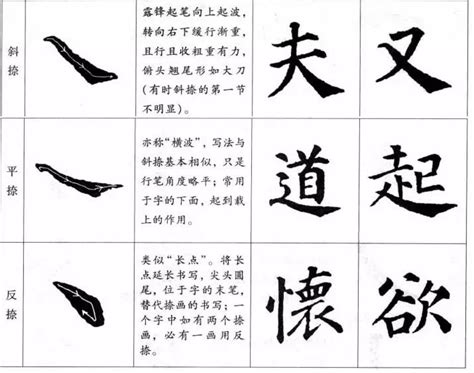 斜捺
露锋起笔向上起波，
转向右下缓行渐重，
且行且收粗重有力，
俯头翘尾形如大刀
(有时斜捺的第一节
不明显)。
夫 又
平捺
亦称“横波”，写法与
斜捺基本相似，只是
行笔角度略平；常用
于字的下面，起到截
上的作用。
道 起
反捺
类似“长点”。将长
点延长书写，尖头圆
尾，位于字的末笔，
替代捺画的书写；一
个字中如有两个捺
画，必有一画用反
捺。
懷 欲